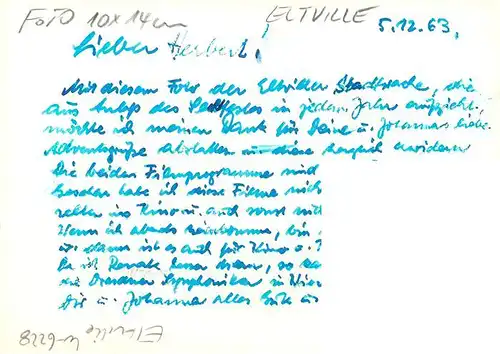 FOTO 10x14cm
ELTVILLE
5.12.63.
Lieber Herbert!
Mit diesem Foto der Eltviller Stadtwache, die
aus Anlaß des Sektfestes in jedem Jahr aufzieht,
möchte ich meinen Dank für Deine u. Johannas liebe
Adventsgrüße abstatten und diese herzlich erwidern
Die beiden Filmprogramme sind
habe ich diese Filme nich
selten ins Kino u. auch sonst
Wenn ich abends heimkomme, bin
u. dann ist es auch für Kino
so
die Dresdner Symphoniker in
Dir u. Johanna alles Gute u
Eltville
W-6228